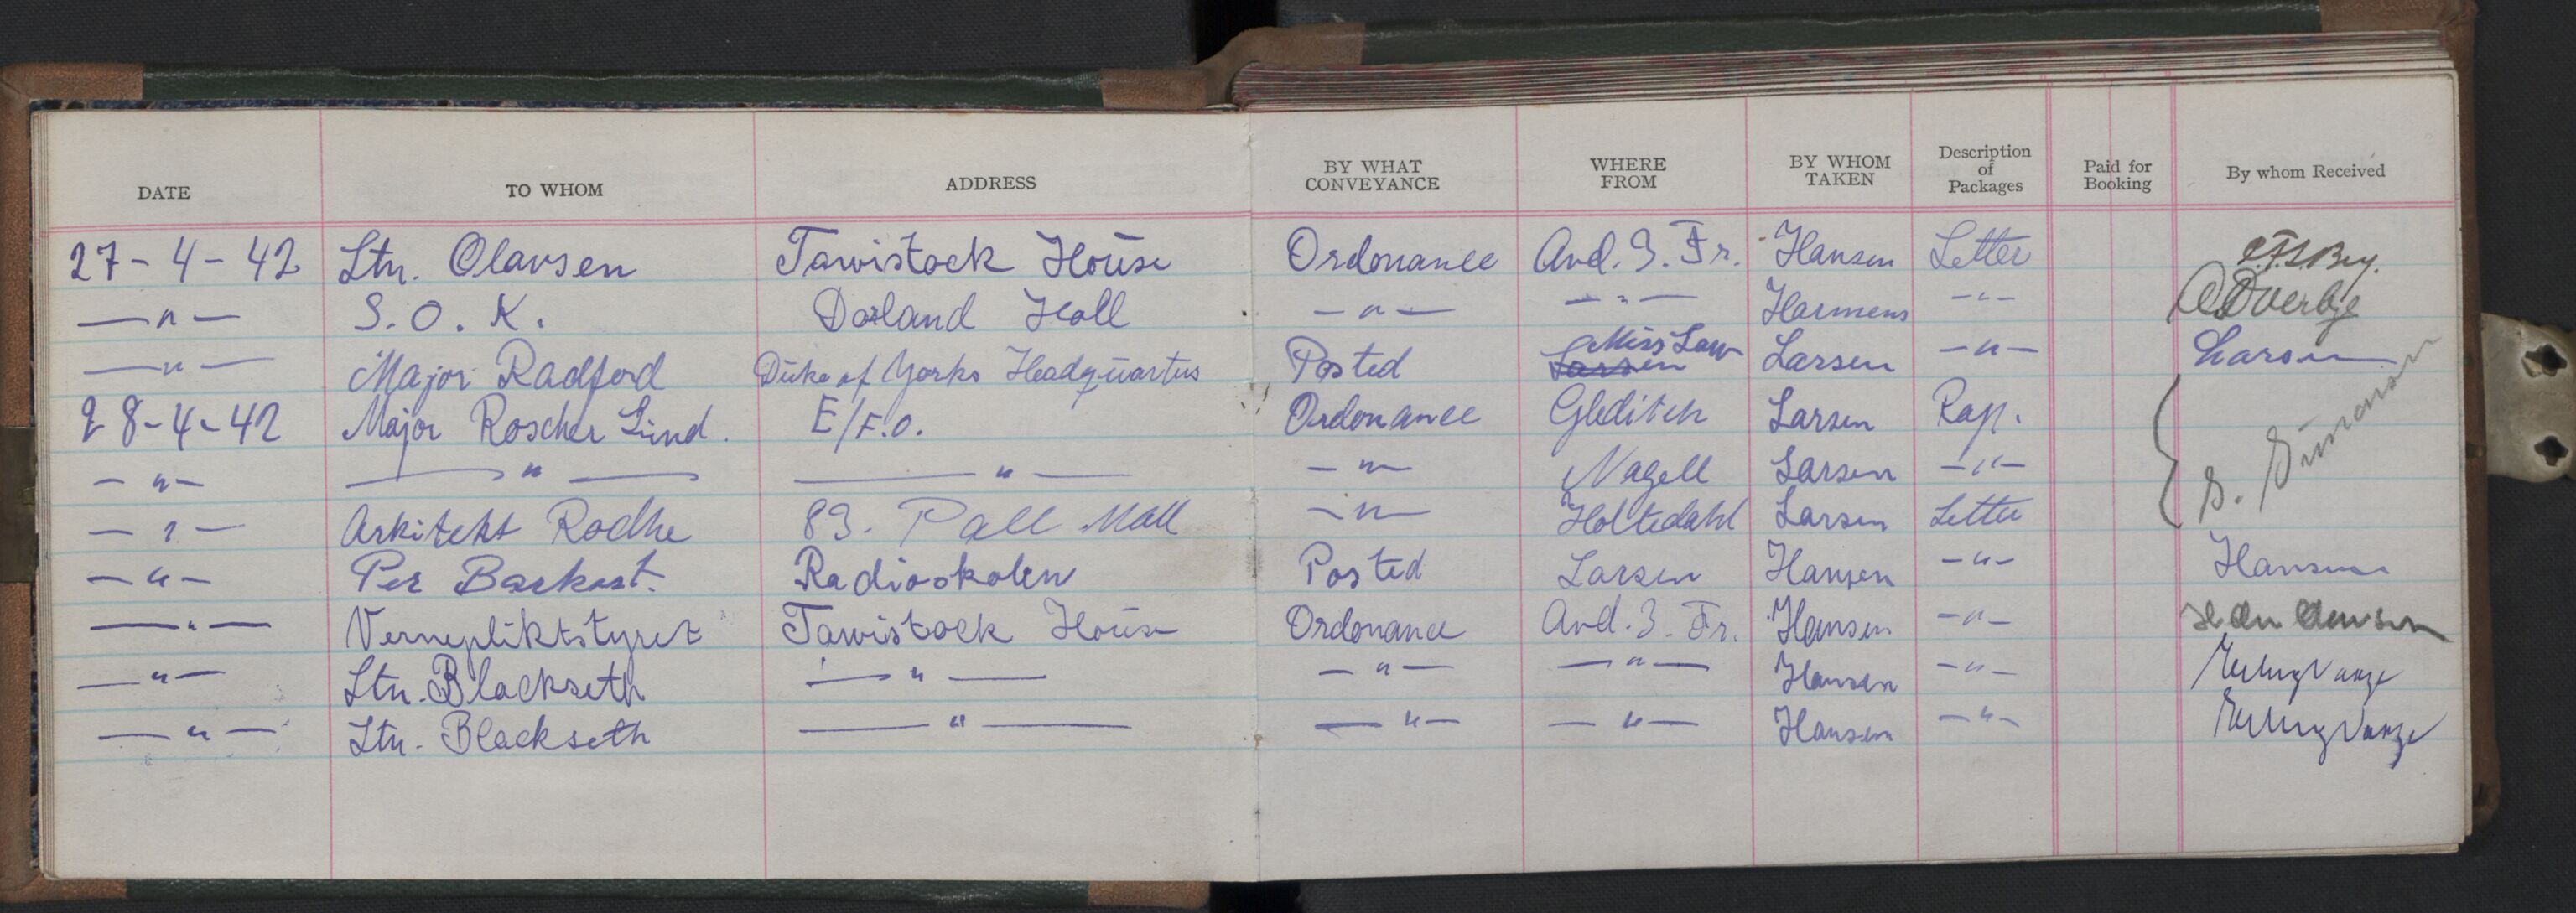 DATE TO WHOM ADDRESS BY WHAT CONVEYANCE WHERE FROM BY WHOM TAKEN Description of Packages Paid for Booking By whom Received
27-4-42 Ltn. Olavsen Tawistock House Ordonance Avd. 3. Fr. Hansen Letter
—"— S.O.K. Dorland Hall —"— —"— Harmens —"— Øverbye
—"— Major Radford Duke of Yorks Headquartus Posted Larsen Miss Law Larsen —"— Larsen
28-4-42 Major Roscher Lund. E/F.O. Ordonance Gleditch Larsen Rap.
—"— —"— —"— —"— Nagell Larsen —"—
—"— Arkitekt Rodhe 83. Pall Mall —"— Holtedahl Larsen Letter
—"— Per Barkost. Radioskolen Posted Larsen Hansen —"— Hansen
—"— Vernepliktstyret Tawistock House Ordonance Avd. 3. Fr. Hansen —"—
—"— Ltn. Blackseth —"— —"— —"— Hansen —"—
—"— Ltn. Blackseth —"— —"— —"— Hansen —"—